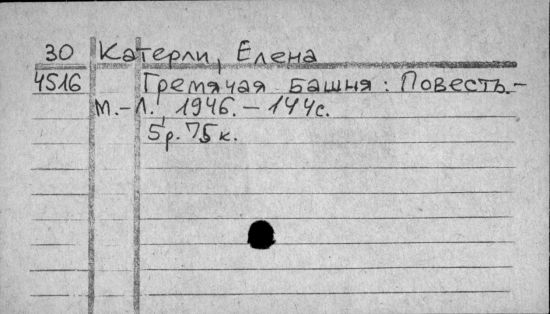 30 Катерли, Елена
4516 Гремячая башня: Повесть.-
М.-Л., 1946.-144с.
5р.75к.